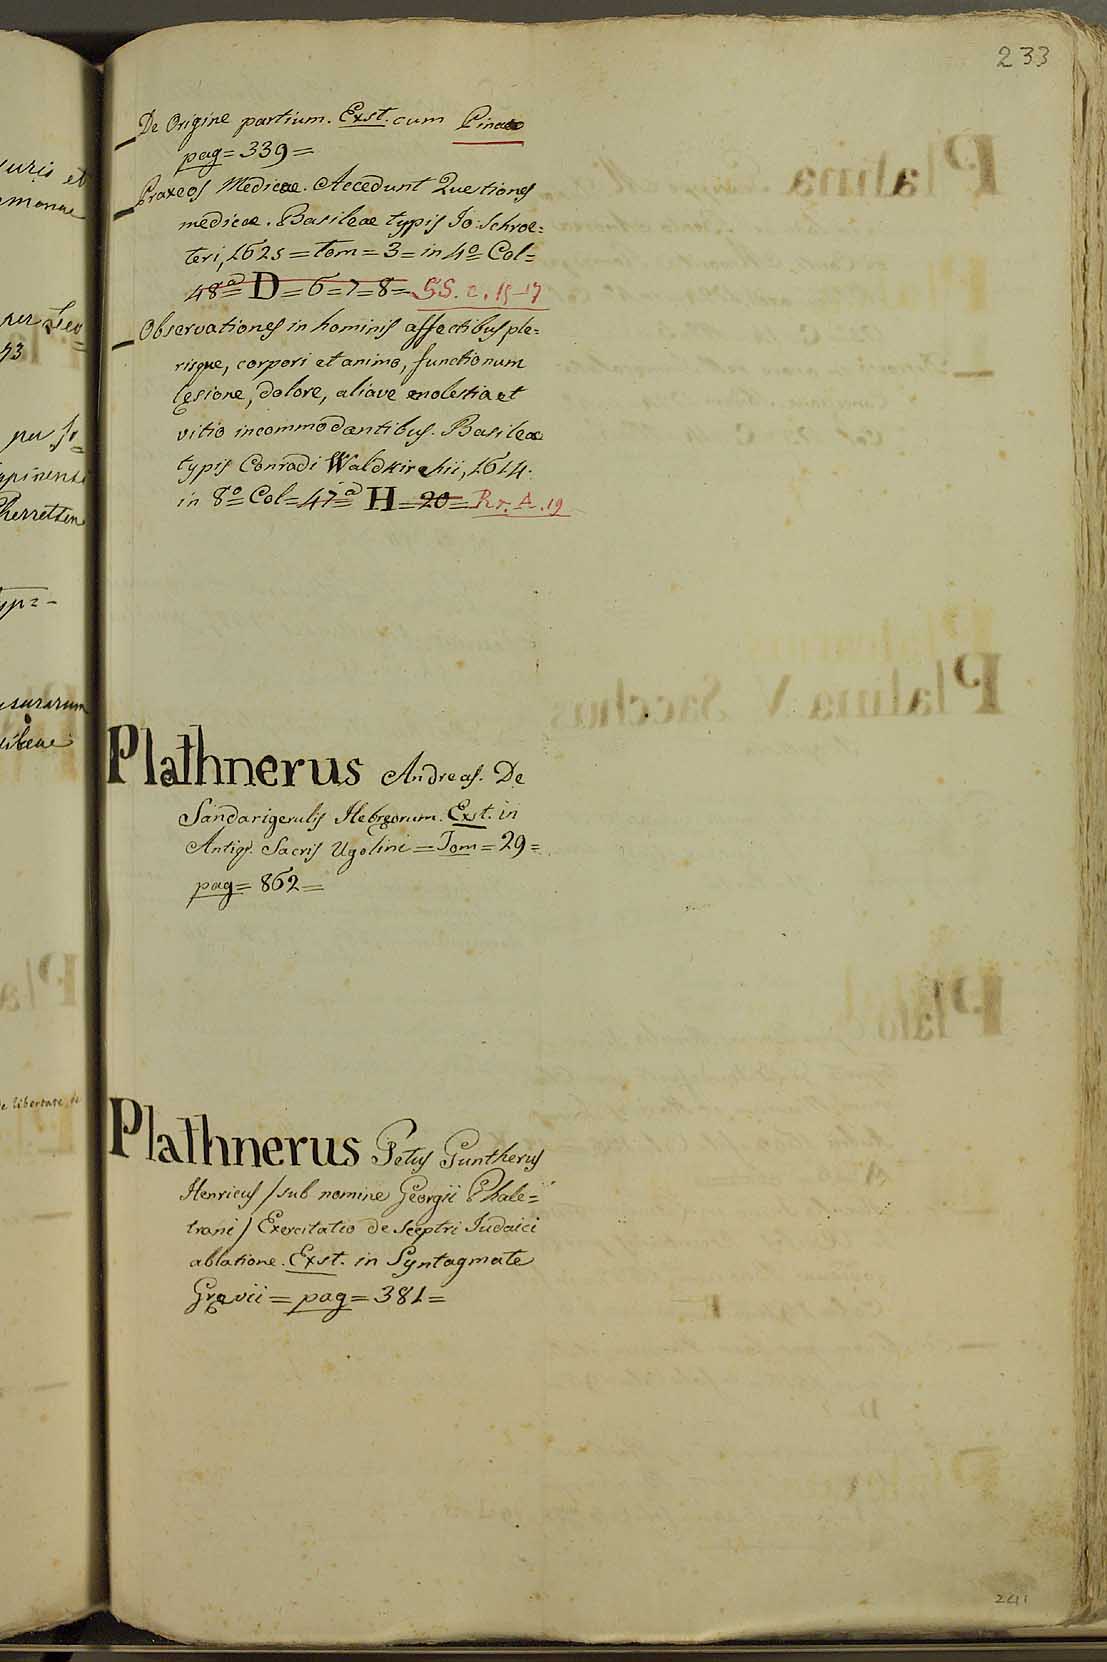 233
De Origine partium. Exst. cum Pinæo
pag = 339 =
Praxeos Medicæ. Accedunt Quæstiones
medicæ. Basileæ typis Jo: Schroe=
teri, 1625 = tom = 3 = in 4º Col =
48ª = D = 6 = 7 = 8 = SS. c. 15-17
Observationes in hominis affectibus ple=
risque, corpori et animo, functionum
lęsione, dolore, aliave molestia et
vitio incommodantibus. Basileæ
typis Conradi Waldkirchii, 1614.
in 8º = Col = 47ª = H = 20 = Rr. A. 19
Plathnerus Andreas. De
Sandarigerulis Hebręorum. Exst. in
Antiqr. Sacris Ugolini = Tom = 29 =
pag = 862 =
Plathnerus Petus Guntherus
Henricus / sub nomine Georgii Phale=
trani / Exercitatio de sceptri Judaici
ablatione. Exst. in Syntagmate
Gręvii = pag = 381 =
241